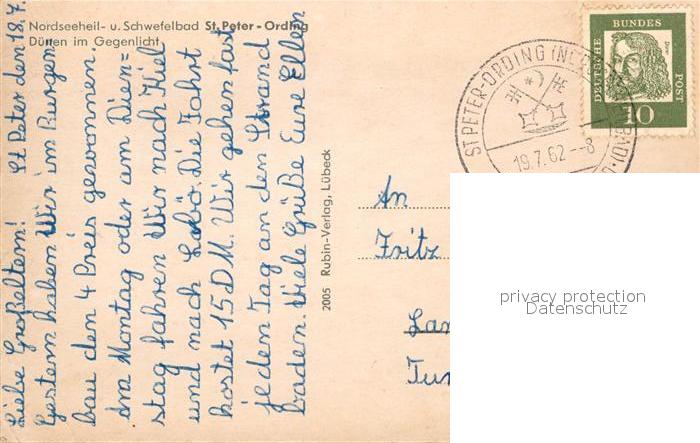 Nordseeheil- u. Schwefelbad St. Peter-Ording
Dünen im Gegenlicht
Liebe Großeltern! St Peter den 18.7.
Gestern haben Wir im Burgen
bau den 4 Preis gewonnen.
Am Montag oder am Dien=
stag fahren Wir nach Kiel
und nach Labö. Die Fahrt
kostet 15 DM. Wir gehen fast
jeden Tag an den Strand
baden. Viele Grüße Eure Ellen
2005 Rubin-Verlag, Lübeck
ST. PETER-ORDING
19.7.62.--8
DEUTSCHE
BUNDES
POST
Dürer
10
An
Fritz
Lan
Tun
privacy protection
Datenschutz